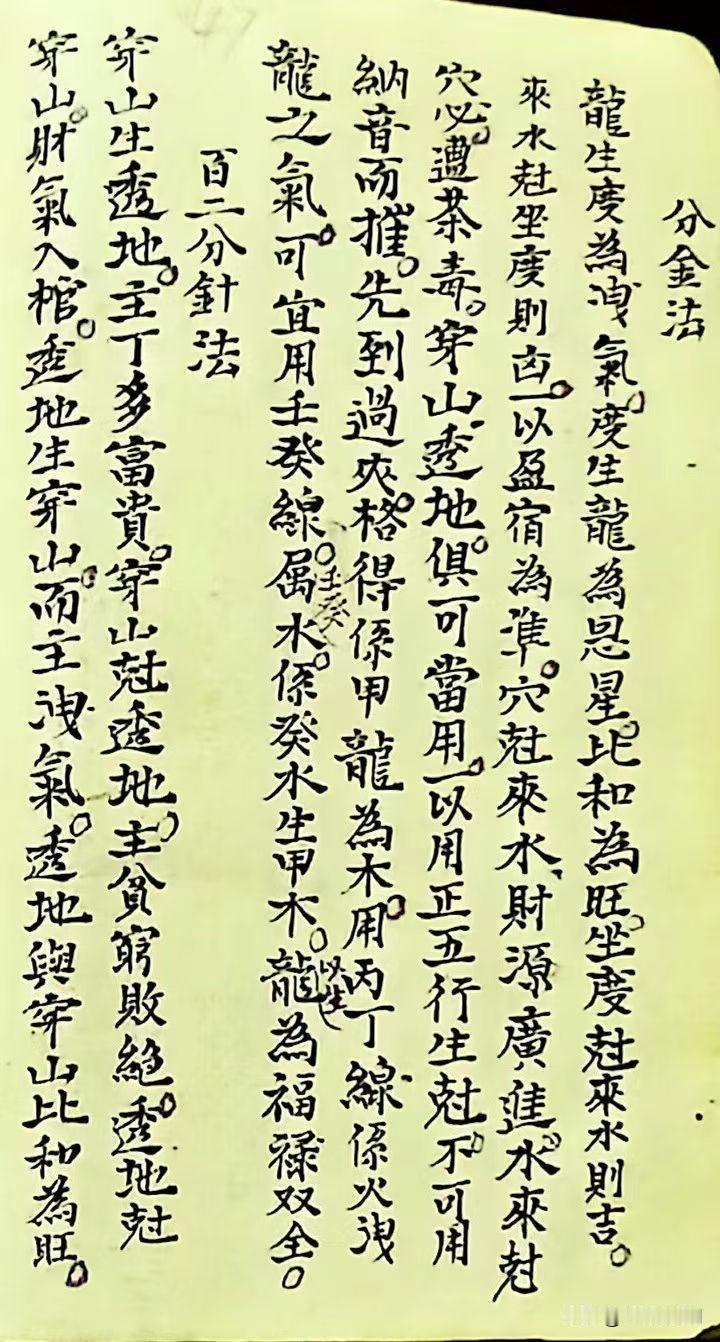 分金法
龍生度為洩氣。度生龍為恩星。比和為旺。坐度尅來水則吉。
來水尅坐度則凶。以盈宿為準。穴尅來水、財源廣進。水來尅
穴必遭荼毒。穿山透地。俱可當用。以用正五行生尅。不可用
納音而摧。先到過夾。格得係甲龍為木。用丙丁線係火洩
龍之氣。可宜用壬癸線。壬癸屬水。係癸水生甲木。以生龍為福祿双全。
百二分針法
穿山生透地。主丁多富貴。穿山尅透地。主貧窮敗絕。透地尅
穿山。財氣入棺。透地生穿山。而主洩氣。透地與穿山比和為旺。